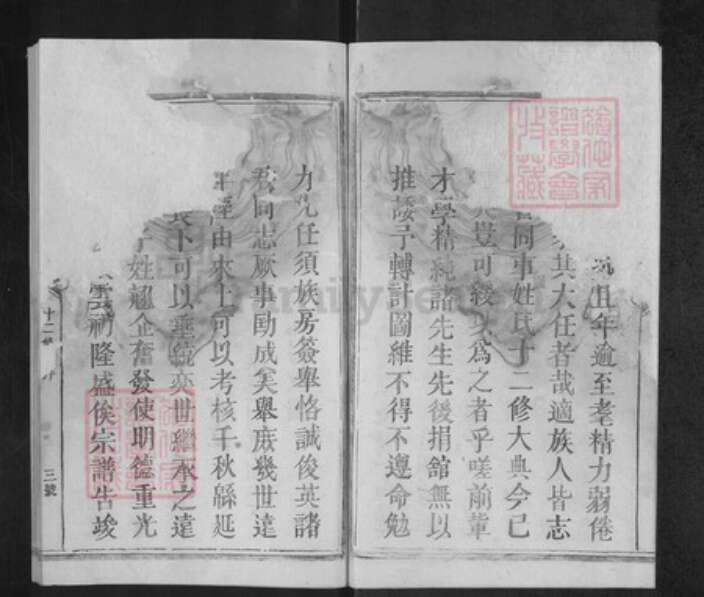 且年逾至耄精力弱倦
其大任者哉適族人皆志
同事姓氏十二修大典今已
豈可緩以為之者乎嗟前輩
才學精純諸先生先後捐舘無以
推諉予轉計圖維不得不遵命勉
力允任須族房簽舉恪誠俊英諸
同志厥事勛成美舉庶幾世達
由來上可以考核千秋緜延
下可以垂統奕世繼承之遠
姓趨企奮發使明德重光
雲礽隆盛俟宗譜告竣
十二修
序
三號